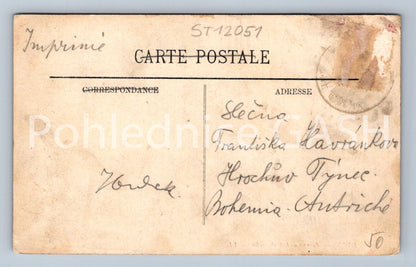 ST12051
Imprimé
CARTE POSTALE
CORRESPONDANCE
ADRESSE
Slečna
Františka Havránkova
Hrochův Týnec
Bohemia. Autriché
50
Pohlednice GASH